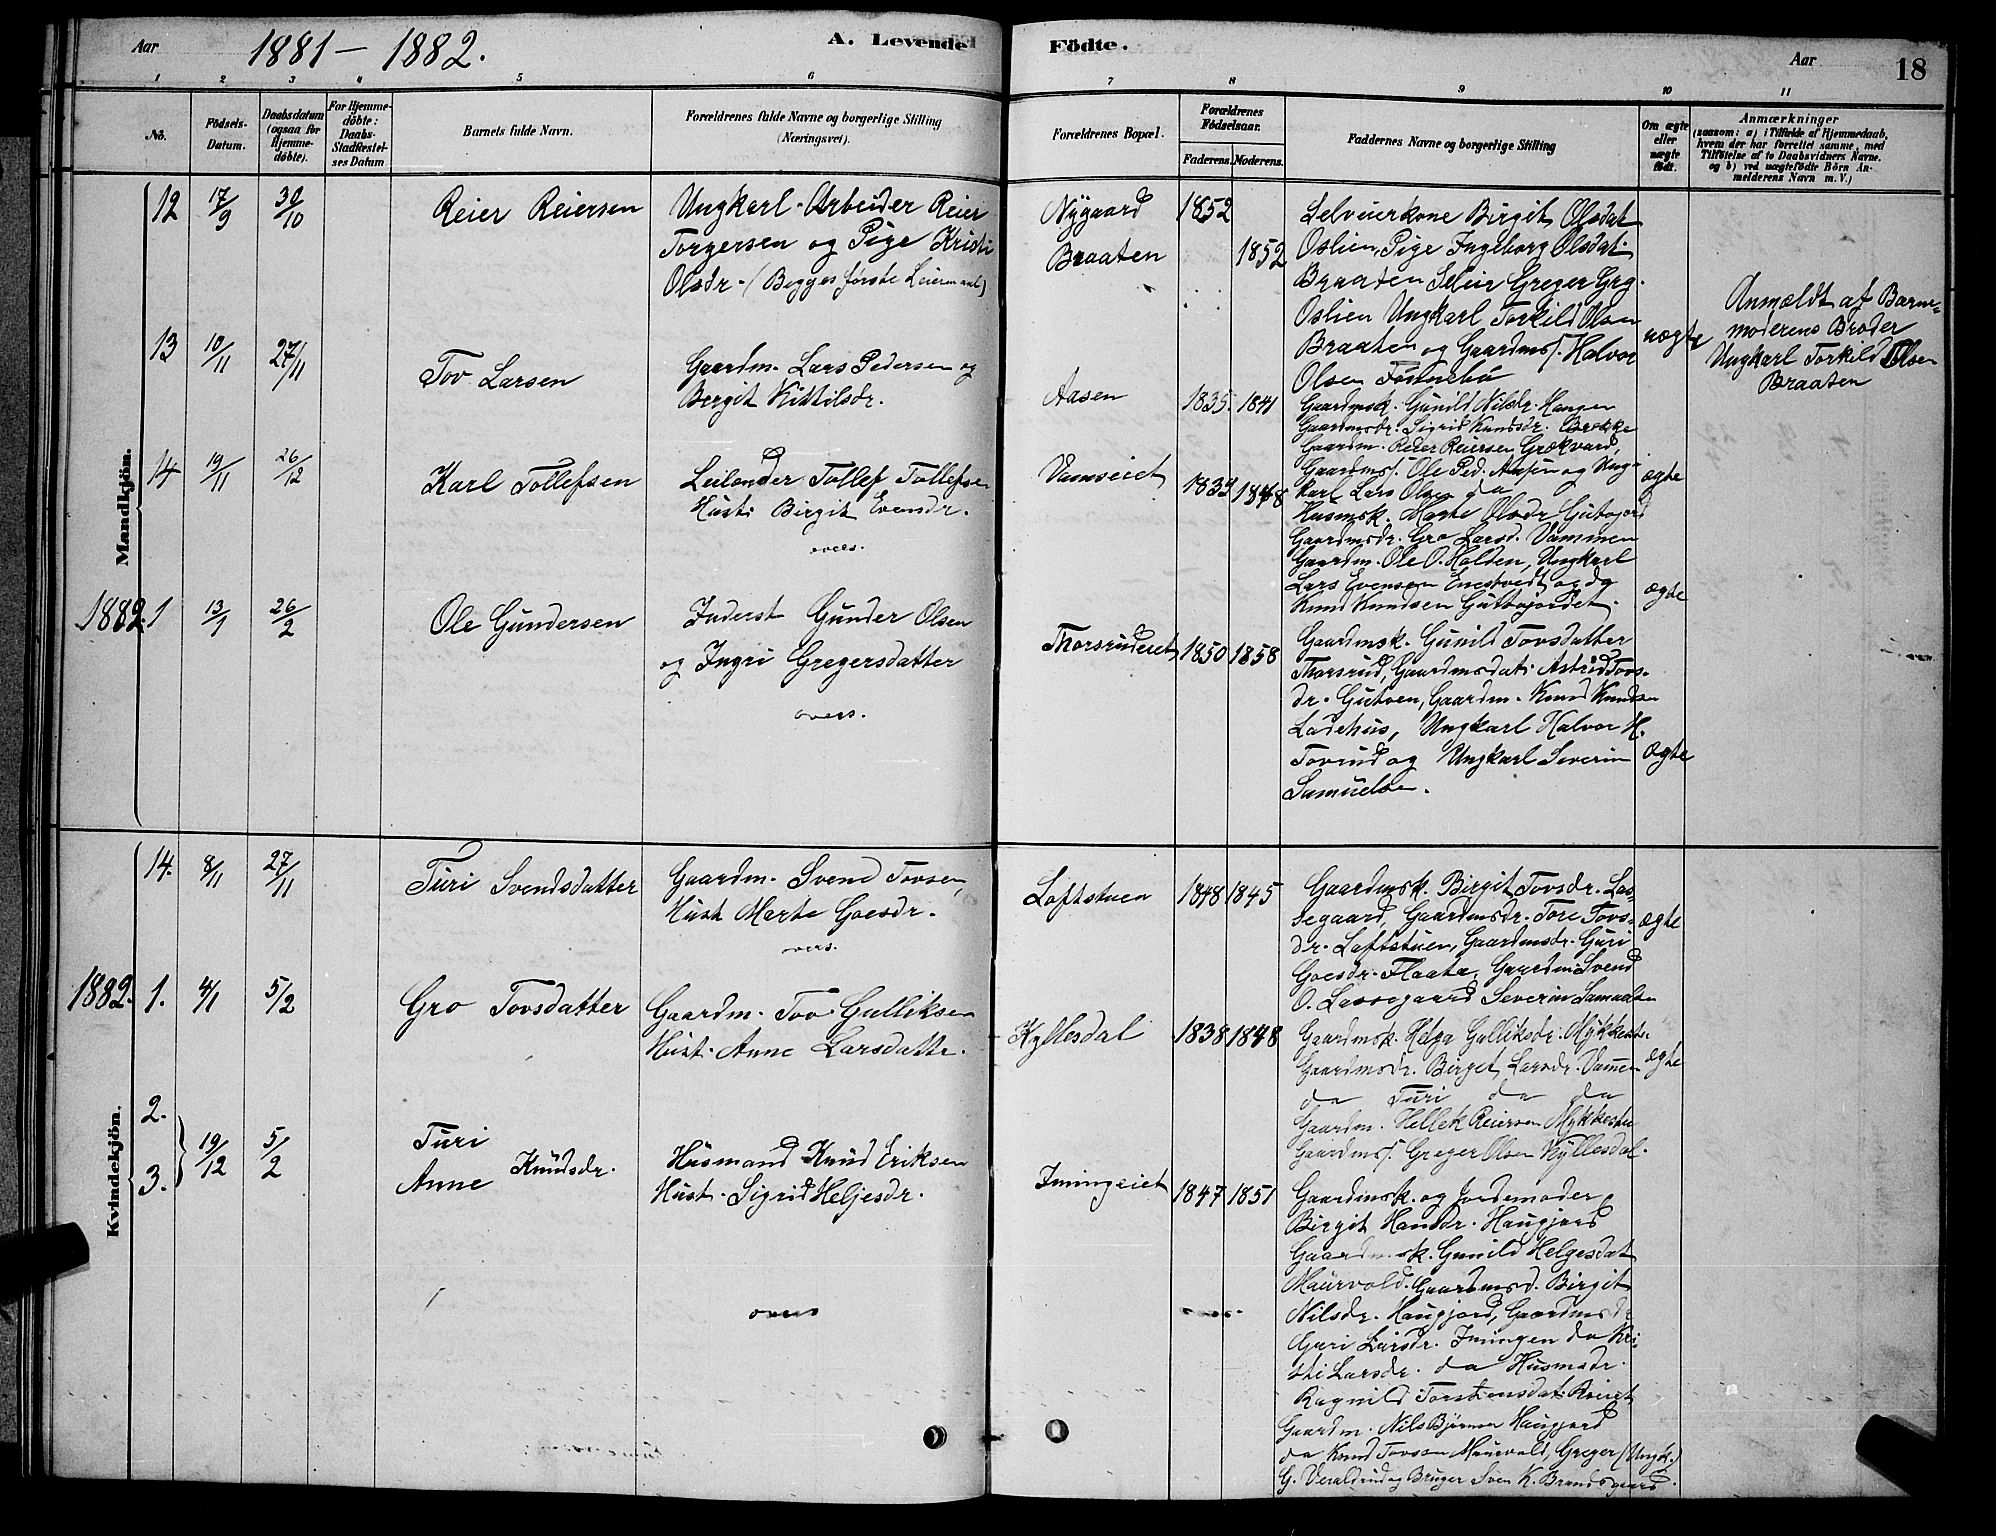 Aar 1881 – 1882. A. Levende Födte. Aar 18
1 2 3 4 5 6 7 8 9 10 11
No. Födsels-Datum. Daabsdatum (ogsaa for Hjemme-döbte). For Hjemme-döbte: Daabs-Stadfæstel-ses Datum Barnets fulde Navn. Forældrenes fulde Navne og borgerlige Stilling (Næringsvei). Forældrenes Bopæl. Forældrenes Födselsaar. Faderens. Moderens. Faddernes Navne og borgerlige Stilling Om ægte eller uægte födt. Anmærkninger (saasom: a) i Tilfælde af Hjemmedaab, hvem der har forrettet samme, med Tilföielse af to Daabsvidners Navne. og b) ved uægtefödte Börn An-melderens Navn m. V.)
Mandkjön.
12 17/9 30/10 Reier Reiersen Ungkarl-Arbeider Reier
Torgersen og Pige Kristi
Olsdr – (Begges første Leiermaal)
Nygaard 1852
Braaten 1852
Selveierkone Birgit Olsdat
Oslien, Pige Ingeborg Olsdat.
Braaten Selvei Greger Grg.
Oslien Ungkarl Torkild Olsen
Braaten og Gaardms/. Halvor
Olsen Tønnebø
uægte
Anmældt af Barne-
moderens Broder
Ungkarl Torkild Olsen
Braaten
13 10/11 27/11 Tov Larsen Gaardm. Lars Pedersen og
Bergit Kittilsdr.
Aasen 1835. 1841
Gaardmsk. Gunild Nilsdr. Haugen
Gaardmsdr. Sigrid Knudsdr. Brække
Gaardm. Reier Reiersen Grækvard,
Gaardms/. Ole Ped. Aasen og Ung-
karl Lars Olsen da
ægte
14 19/11 26/12 Karl Tollefsen Leilender Tollef Tollefsen
Hust. Birgit Evendr.
overs.
Vamseiet 1839 1848
Husmsk. Marte Olsdr Gutujord
Gaardmsdr. Gro Larsd. Vammen
Gaardm. Ole O. Halden, Ungkarl
Lars Evensen Enestvedt og da
Knud Knudsen Guttujordet.
ægte
1882. 1 13/1 26/2 Ole Gundersen Inderst Gunder Olsen
og Ingri Gregersdatter
overs.
Thorsrudeiet 1850 1858
Gaardmsk. Gunild Tovsdatter
Thorsrud, Gaardmsdat. Astrid Tovs-
dr. Gutuen, Gaardm. Knud Knudsen
Ladehus, Ungkarl Halvor H.
Tovrud og Ungkarl Severin
Samuelsen.
ægte
Kvindekjön.
14. 8/11 27/11 Turi Svendsdatter Gaardm. Svend Tovsen,
Hust Marte Goesdr.
overs.
Loftstuen 1848 1845
Gaardmsk. Birgit Tovsdr. Las-
segaard, Gaardmsdr. Tore Tovs-
dr. Loftstuen, Gaardmsdr. Guri
Goesdr. Flaata, Gaardm. Svend
O. Lassegaard Severin Samuelsen
ægte
1882. 1. 4/1 5/2 Gro Tovsdatter Gaardm. Tov Gulliksen
Hust. Anne Larsdattr.
Kyllesdal 1838 1848
Gaardmsk. Helga Gulliksdr. Mykkestu.
Gaardmsdr. Birget Larsdr. Vamen
da Turi da da
Gaardm. Hellek Reiersen Mykkestu
Gaardms/. Greger Olsen Kyllesdal.
ægte
2.
3. 19/12 5/2 Turi
Anne Knudsdr. Husmand Knud Eriksen
Hust. Sigrid Heljesdr.
overs
Imingeiet 1847 1851
Gaardmsk. og Jordemoder
Birgit Hansdr. Haugjord
Gaardm. sk. Gunild Helgesdat
Maurvold. Gaardmsd. Birgit
Nilsdr. Haugjord, Gaardmsdr
Guri Larsdr. Imingen da Kri-
sti Larsdr. da Husmsdr.
Ragnild Torstensdat.
Gaardm. Nils Bjørnsen Haugjord
da Knud Tovsen Maurvold, Greger (Ungk.)
G. Veraldrud og Bruger Sven K. Brandsgaard